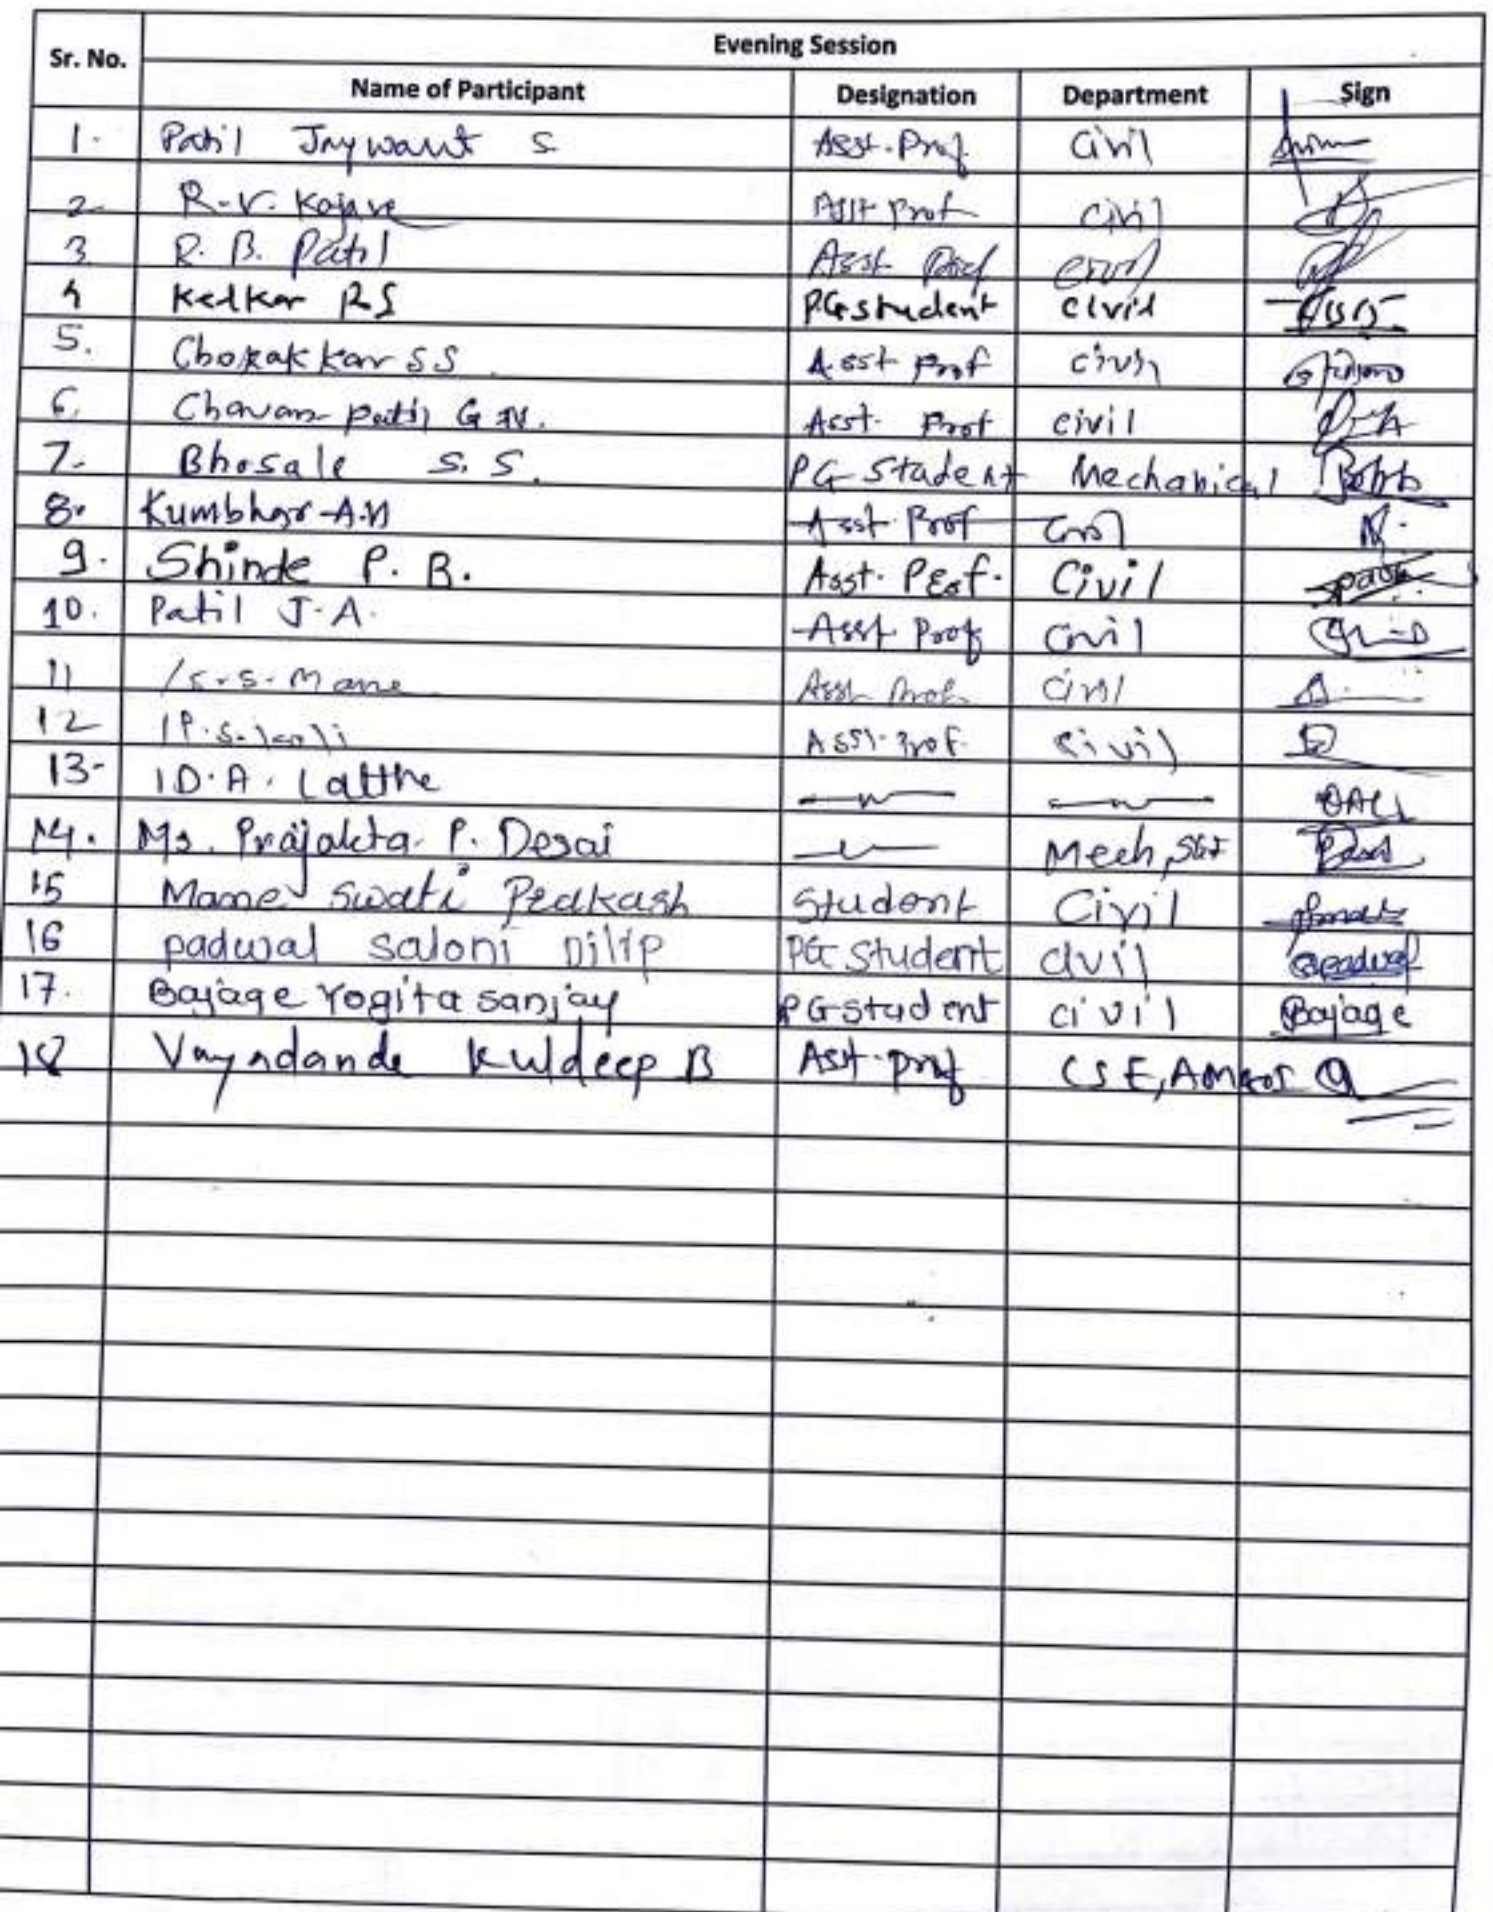 Evening Session
Sr. No. Name of Participant Designation Department Sign
1. Patil Jaywant S. Asst. Prof. Civil
2. R.V. Kajave Asst Prof Civil
3. R. B. Patil Asst Prof Civil
4 Kelkar RS PG student civil
5. Chokakkar SS Asst Prof civil
6. Chavan patil G.N. Asst. Prof civil
7. Bhosale S.S. PG Student Mechanical
8. Kumbhar A.N Asst. Prof Civil
9. Shinde P. R. Asst. Prof. Civil
10. Patil J.A. Asst. Prof Civil
11 S.S. Mane Asst Prof. Civil
12 P.S. koli Asst. Prof. civil
13. D.A. Latthe —〃— —〃— DACL
14. Ms. Prajakta P. Desai —〃— Mech, SGI
15 Mane Swati Prakash Student Civil
16 padwal saloni Dilip PG Student civil
17. Bajage Yogita sanjay PG student civil Bajage
18 Vayadande Kuldeep B Asst. prof CSE,